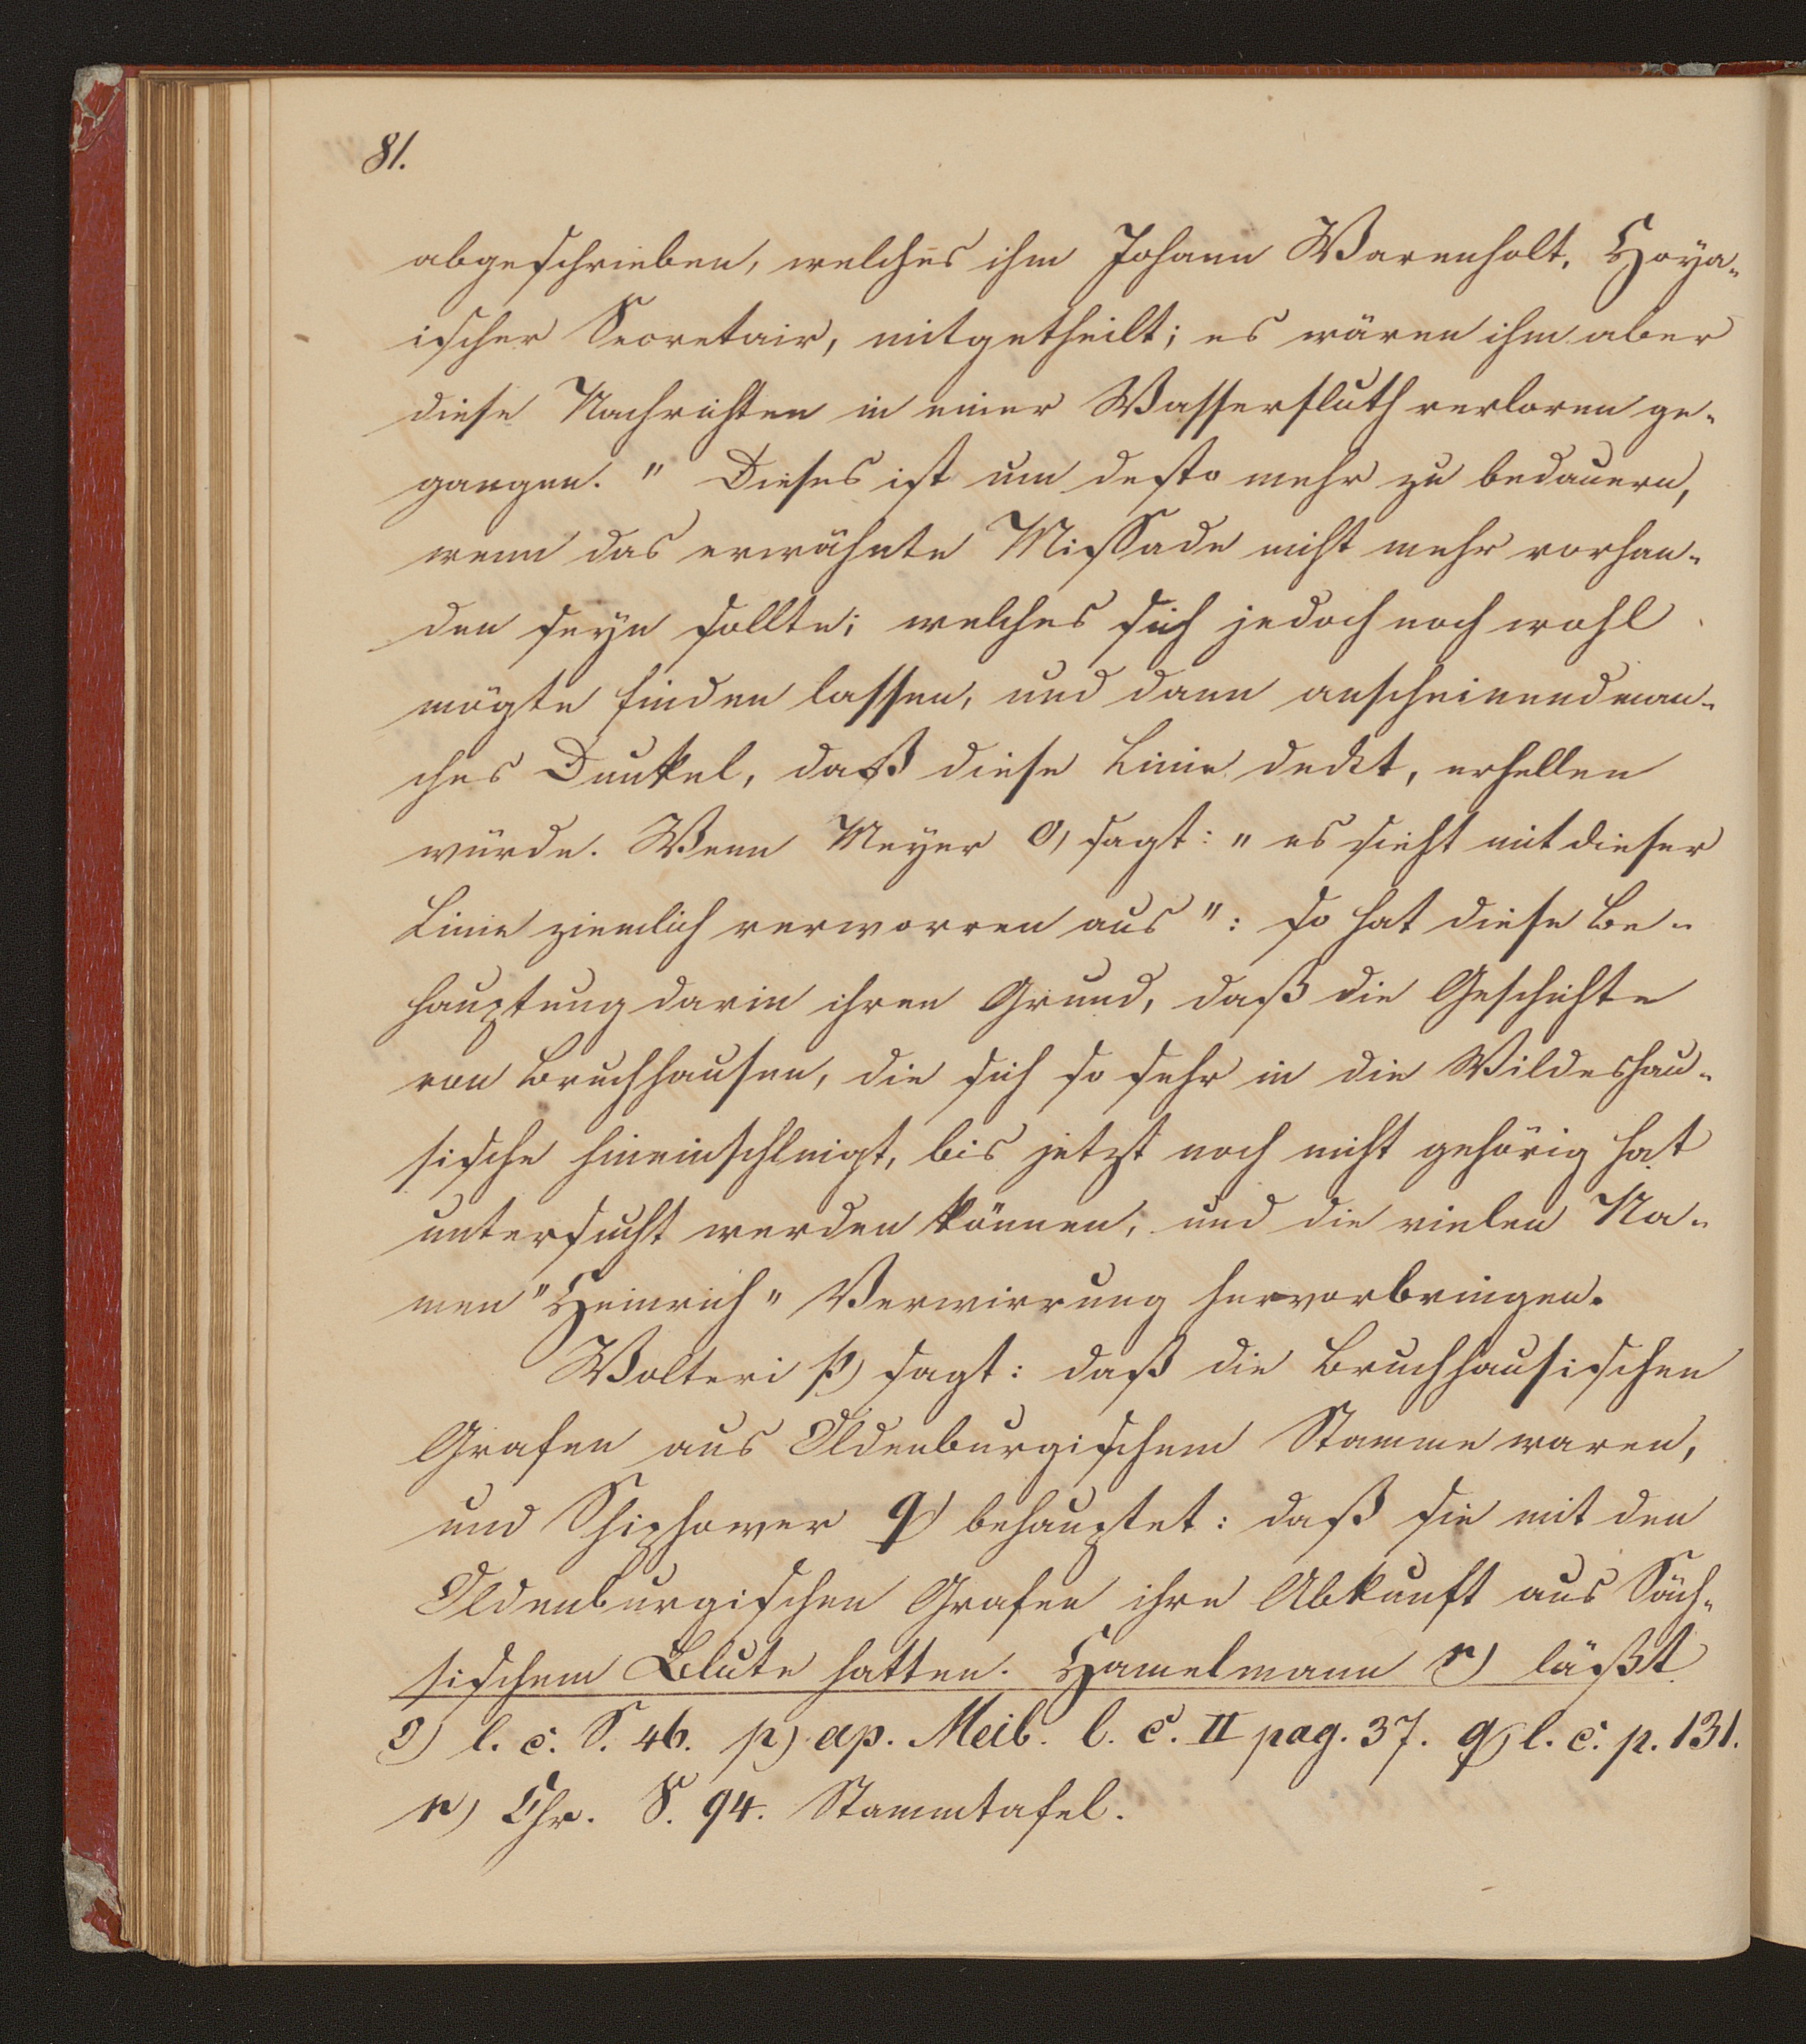 81.
abgeschrieben, welches ihm Johann Warenholt, Hoya-
ischer Secretair, mitgetheilt; es wären ihm aber
diese Nachrichten in einer Wasserfluth verloren ge-
gangen." Dieses ist um desto mehr zu bedauern,
wenn das erwähnte Missade nicht mehr vorhan-
den seyn sollte; welches sich jedoch noch wohl
mögte finden lassen, und dann anscheinend man-
ches Dunkel, daß diese Linie deckt, erhellen
würde. Wenn Meyer o) sagt: "es sieht mit dieser
Linie ziemlich verworren aus": so hat diese Be-
hauptung darin ihren Grund, daß die Geschichte
von Bruchhausen, die sich so sehr in die Wildeshau-
sische hineinschleigt, bis jetzt noch nicht gehörig hat
untersucht werden können, und die vielen Na-
men "Heinrich" Verwirrung hervorbringen.
Wolteri p) sagt: daß die Bruchhausischen
Grafen aus Oldenburgischem Stamme waren,
und Schiphower q) behauptet: daß sie mit den
Oldenburgischen Grafen ihre Abkunft aus Säch-
sischem Blute hatten. Hamelmann r) läßt
o) l. c. S. 46. p) ap. Meib. l. c. II pag. 37. q) l. c. p. 131.
r) Chr. S. 94. Stammtafel.